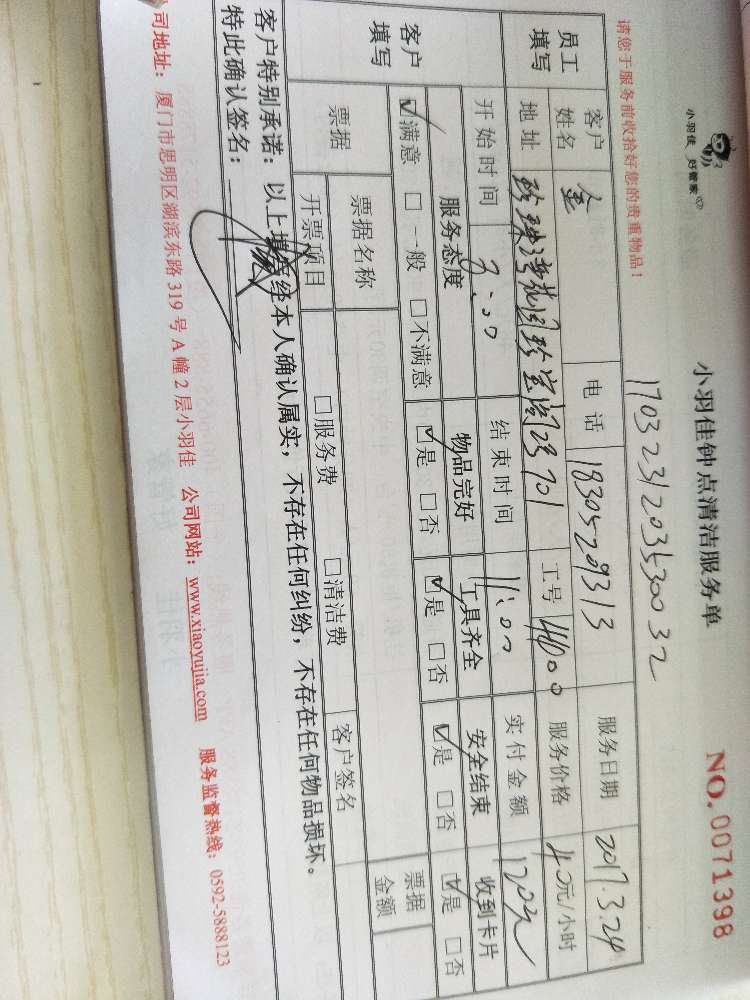 小羽佳 好管家
小羽佳钟点清洁服务单
NO.0071398
请您于服务前收拾好您的贵重物品!
员工填写
客户姓名 金 电话 18305291313 服务日期 2017.3.24
地址 珍珠湾花园珍宝阁23 701 工号 服务价格 40元/小时
开始时间 8:00 结束时间 11:00 实付金额 120元
客户填写
服务态度 物品完好 工具齐全 安全结束 收到卡片
☑满意 □一般 □不满意 ☑是 □否 ☑是 □否 ☑是 □否 ☑是 □否
票据 票据名称 客户签名 票据金额
开票项目 □服务费 □清洁费
客户特别承诺:以上填写经本人确认属实,不存在任何纠纷,不存在任何物品损坏。
特此确认签名:
司地址:厦门市思明区湖滨东路319号A幢2层小羽佳 公司网站:www.xiaoyujia.com 服务监督热线:0592-5888123